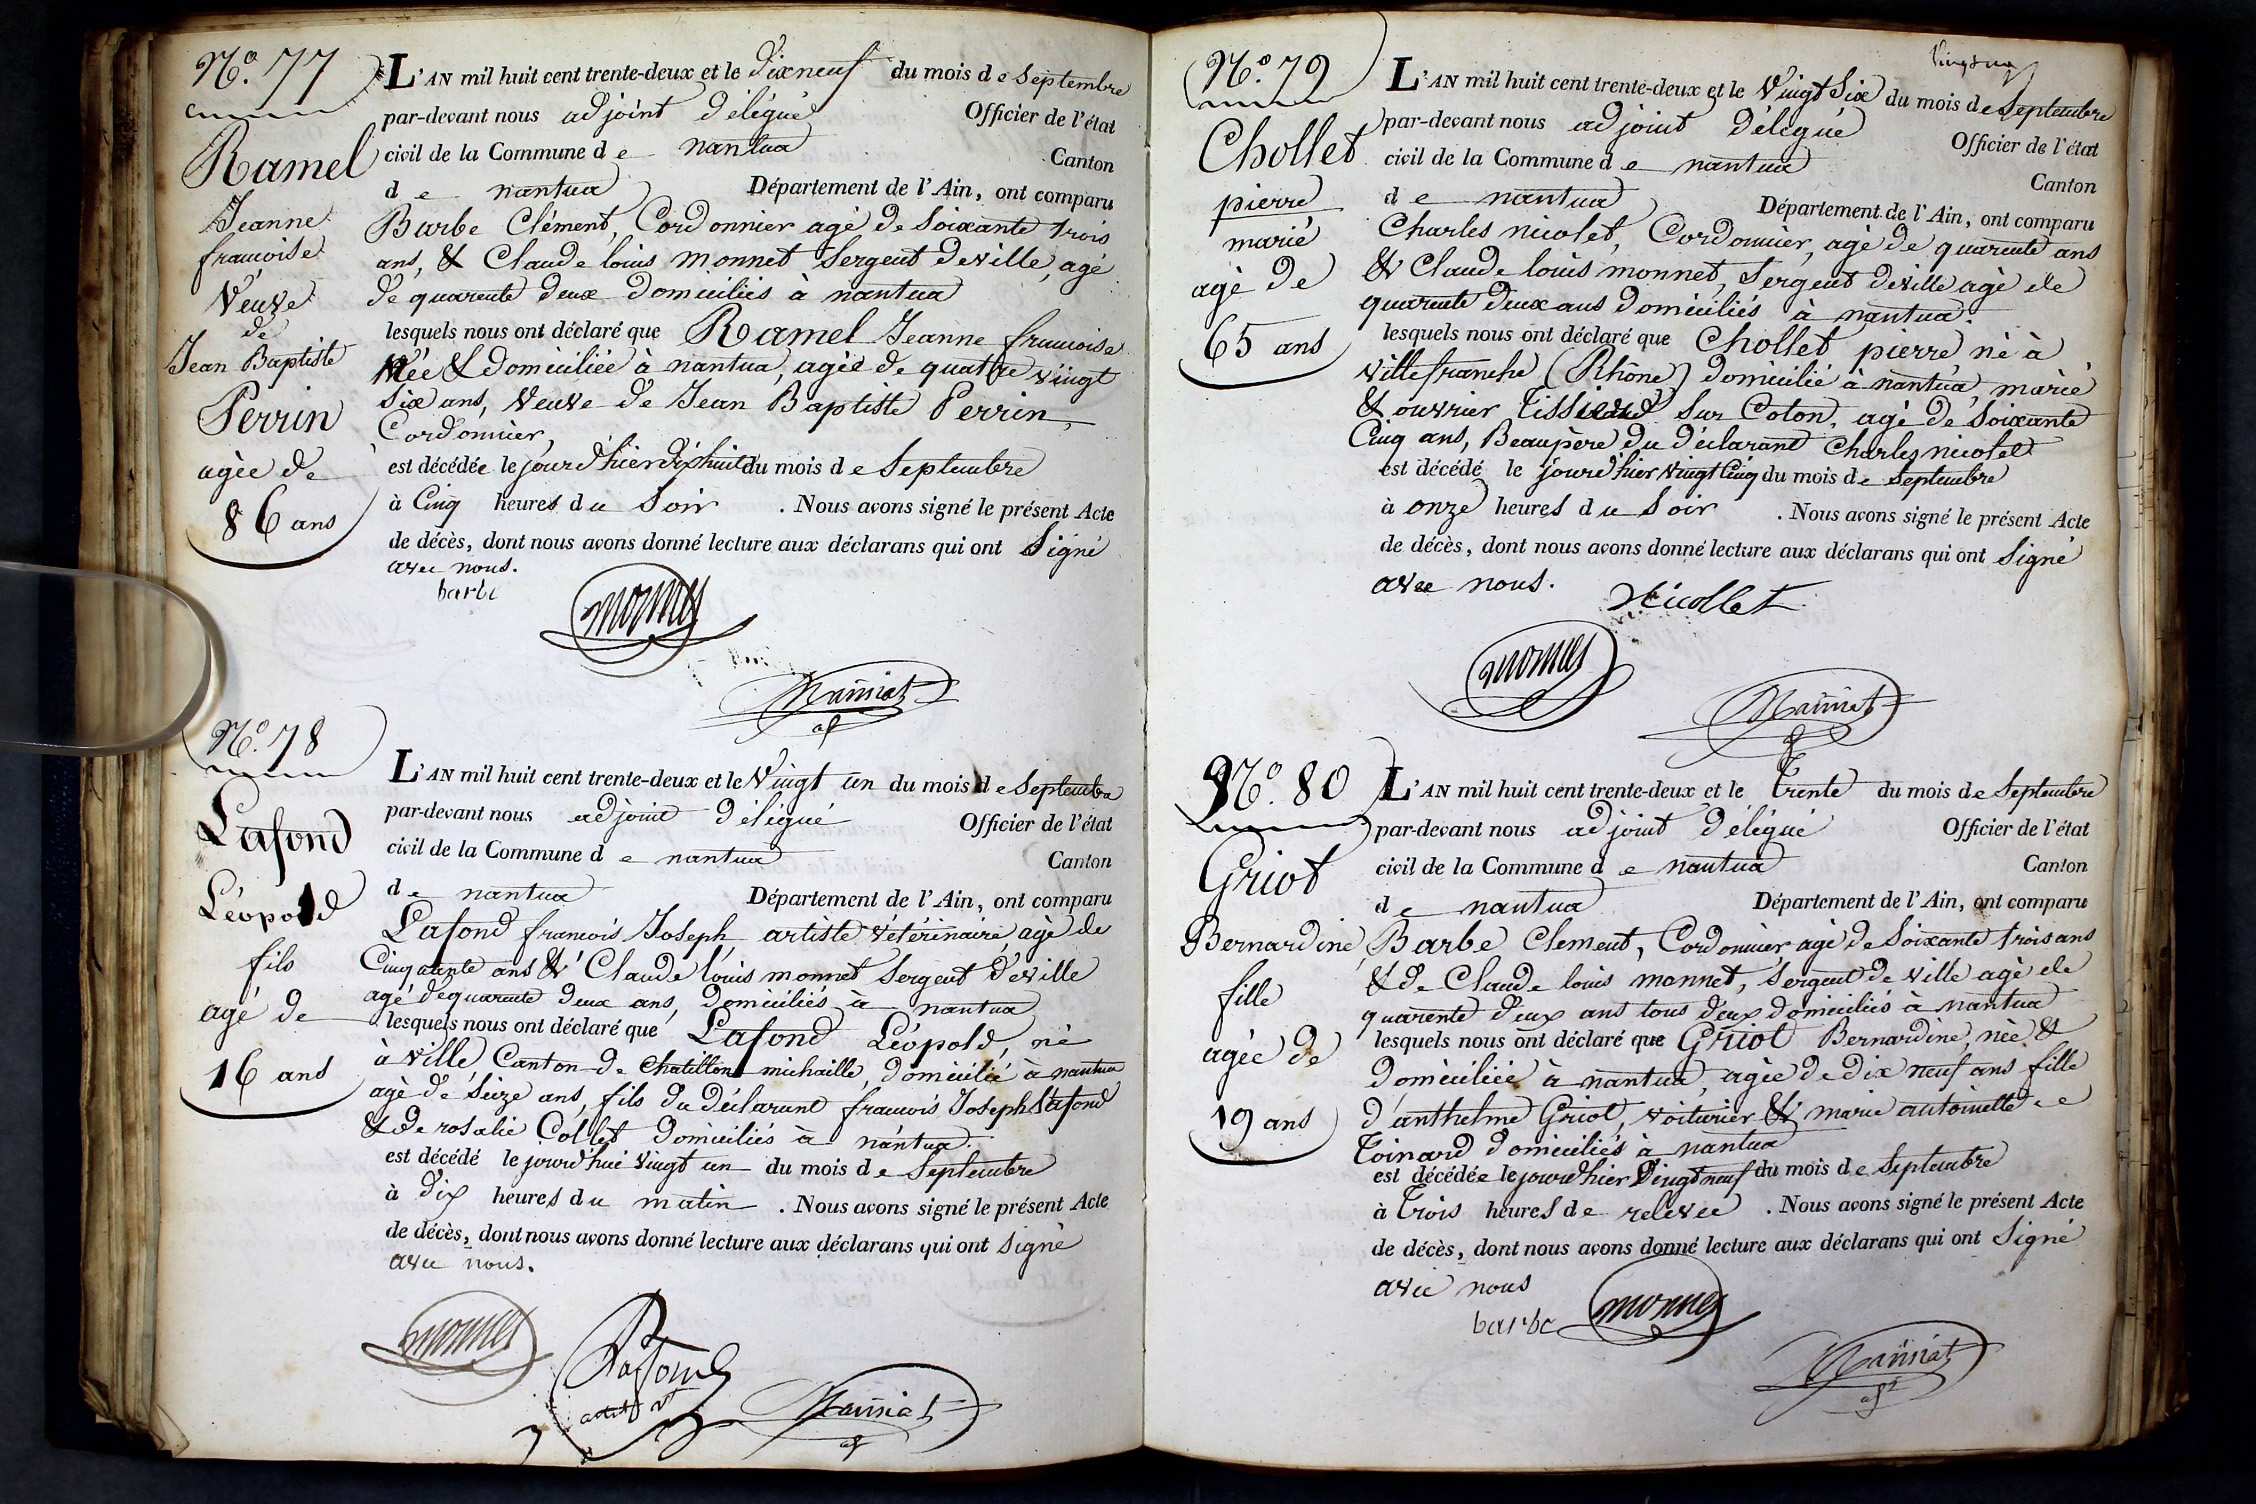 N.º 77
Ramel
Jeanne
francoise
Veuve
de
Jean Baptiste
Perrin
agée de
86 ans
L'AN mil huit cent trente-deux et le dixneuf du mois de Septembre
par-devant nous adjoint délégué Officier de l'état
civil de la Commune de nantua Canton
de nantua Département de l'Ain, ont comparu
Barbe Clément, Cordonnier agé de Soixante trois
ans, & Claude louis monnet Sergent de ville, agé
de quarente deux domiciliés à nantua
lesquels nous ont déclaré que Ramel Jeanne francoise
Née & domiciliée à nantua, agée de quatre vingt
Six ans, Veuve de Jean Baptiste Perrin,
Cordonnier,
est décédée le jour d'hier dixhuit du mois de Septembre
à Cinq heures du Soir . Nous avons signé le présent Acte
de décès, dont nous avons donné lecture aux déclarans qui ont Signé
avec nous.
barbe
monnet
N.º 78
Lafond
Léopold
fils
agé de
16 ans
L'AN mil huit cent trente-deux et le Vingt un du mois de Septembre
par-devant nous adjoint délégué Officier de l'état
civil de la Commune de nantua Canton
de nantua Département de l'Ain, ont comparu
Lafond francois Joseph artiste vétérinaire, agé de
Cinquante ans & Claude louis monnet Sergent de ville
agé de quarente deux ans, domiciliés à nantua
lesquels nous ont déclaré que Lafond Léopold, né
à ville Canton de Chatillon michaille, domicilié à nantua
agé de Seize ans, fils du déclarant francois Joseph Lafond
& de rosalie Collet domiciliés à nantua.
est décédé le jourd'hui vingt un du mois de Septembre
à dix heures du matin . Nous avons signé le présent Acte
de décès, dont nous avons donné lecture aux déclarans qui ont Signé
avec nous.
monnet
Lafond
N.º 79
Chollet
pierre
marié
agé de
65 ans
L'AN mil huit cent trente-deux et le Vingt Six du mois de Septembre
par-devant nous adjoint délégué Officier de l'état
civil de la Commune de nantua Canton
de nantua Département de l'Ain, ont comparu
Charles nicolet, Cordonnier, agé de quarente ans
& Claude louis monnet, Sergent de ville agé de
quarente deux ans domiciliés à nantua.
lesquels nous ont déclaré que Chollet pierre né à
villefranche (Rhône) domicilié à nantua, marié
& ouvrier Tisserand Sur Coton, agé de Soixante
Cinq ans, Beaupère du déclarant Charles nicolet
est décédé le jour d'hier vingt Cinq du mois de Septembre
à onze heures du Soir . Nous avons signé le présent Acte
de décès, dont nous avons donné lecture aux déclarans qui ont Signé
avec nous.
Nicollet
monnet
N.º 80
Griot
Bernardine
fille
agée de
19 ans
L'AN mil huit cent trente-deux et le Trente du mois de Septembre
par-devant nous adjoint délégué Officier de l'état
civil de la Commune de nantua Canton
de nantua Département de l'Ain, ont comparu
Barbe Clement, Cordonnier, agé de Soixante trois ans
& de Claude louis monnet, Sergent de ville agé de
quarente deux ans tous deux domiciliés à nantua
lesquels nous ont déclaré que Griot Bernardine, née &
domiciliée à nantua, agée de dix neuf ans fille
d'anthelme Griot, voiturier & marie antoinette
Toinard domiciliés à nantua
est décédée le jour d'hier Vingt neuf du mois de Septembre
à Trois heures de relevée . Nous avons signé le présent Acte
de décès, dont nous avons donné lecture aux déclarans qui ont Signé
avec nous
barbe monnet